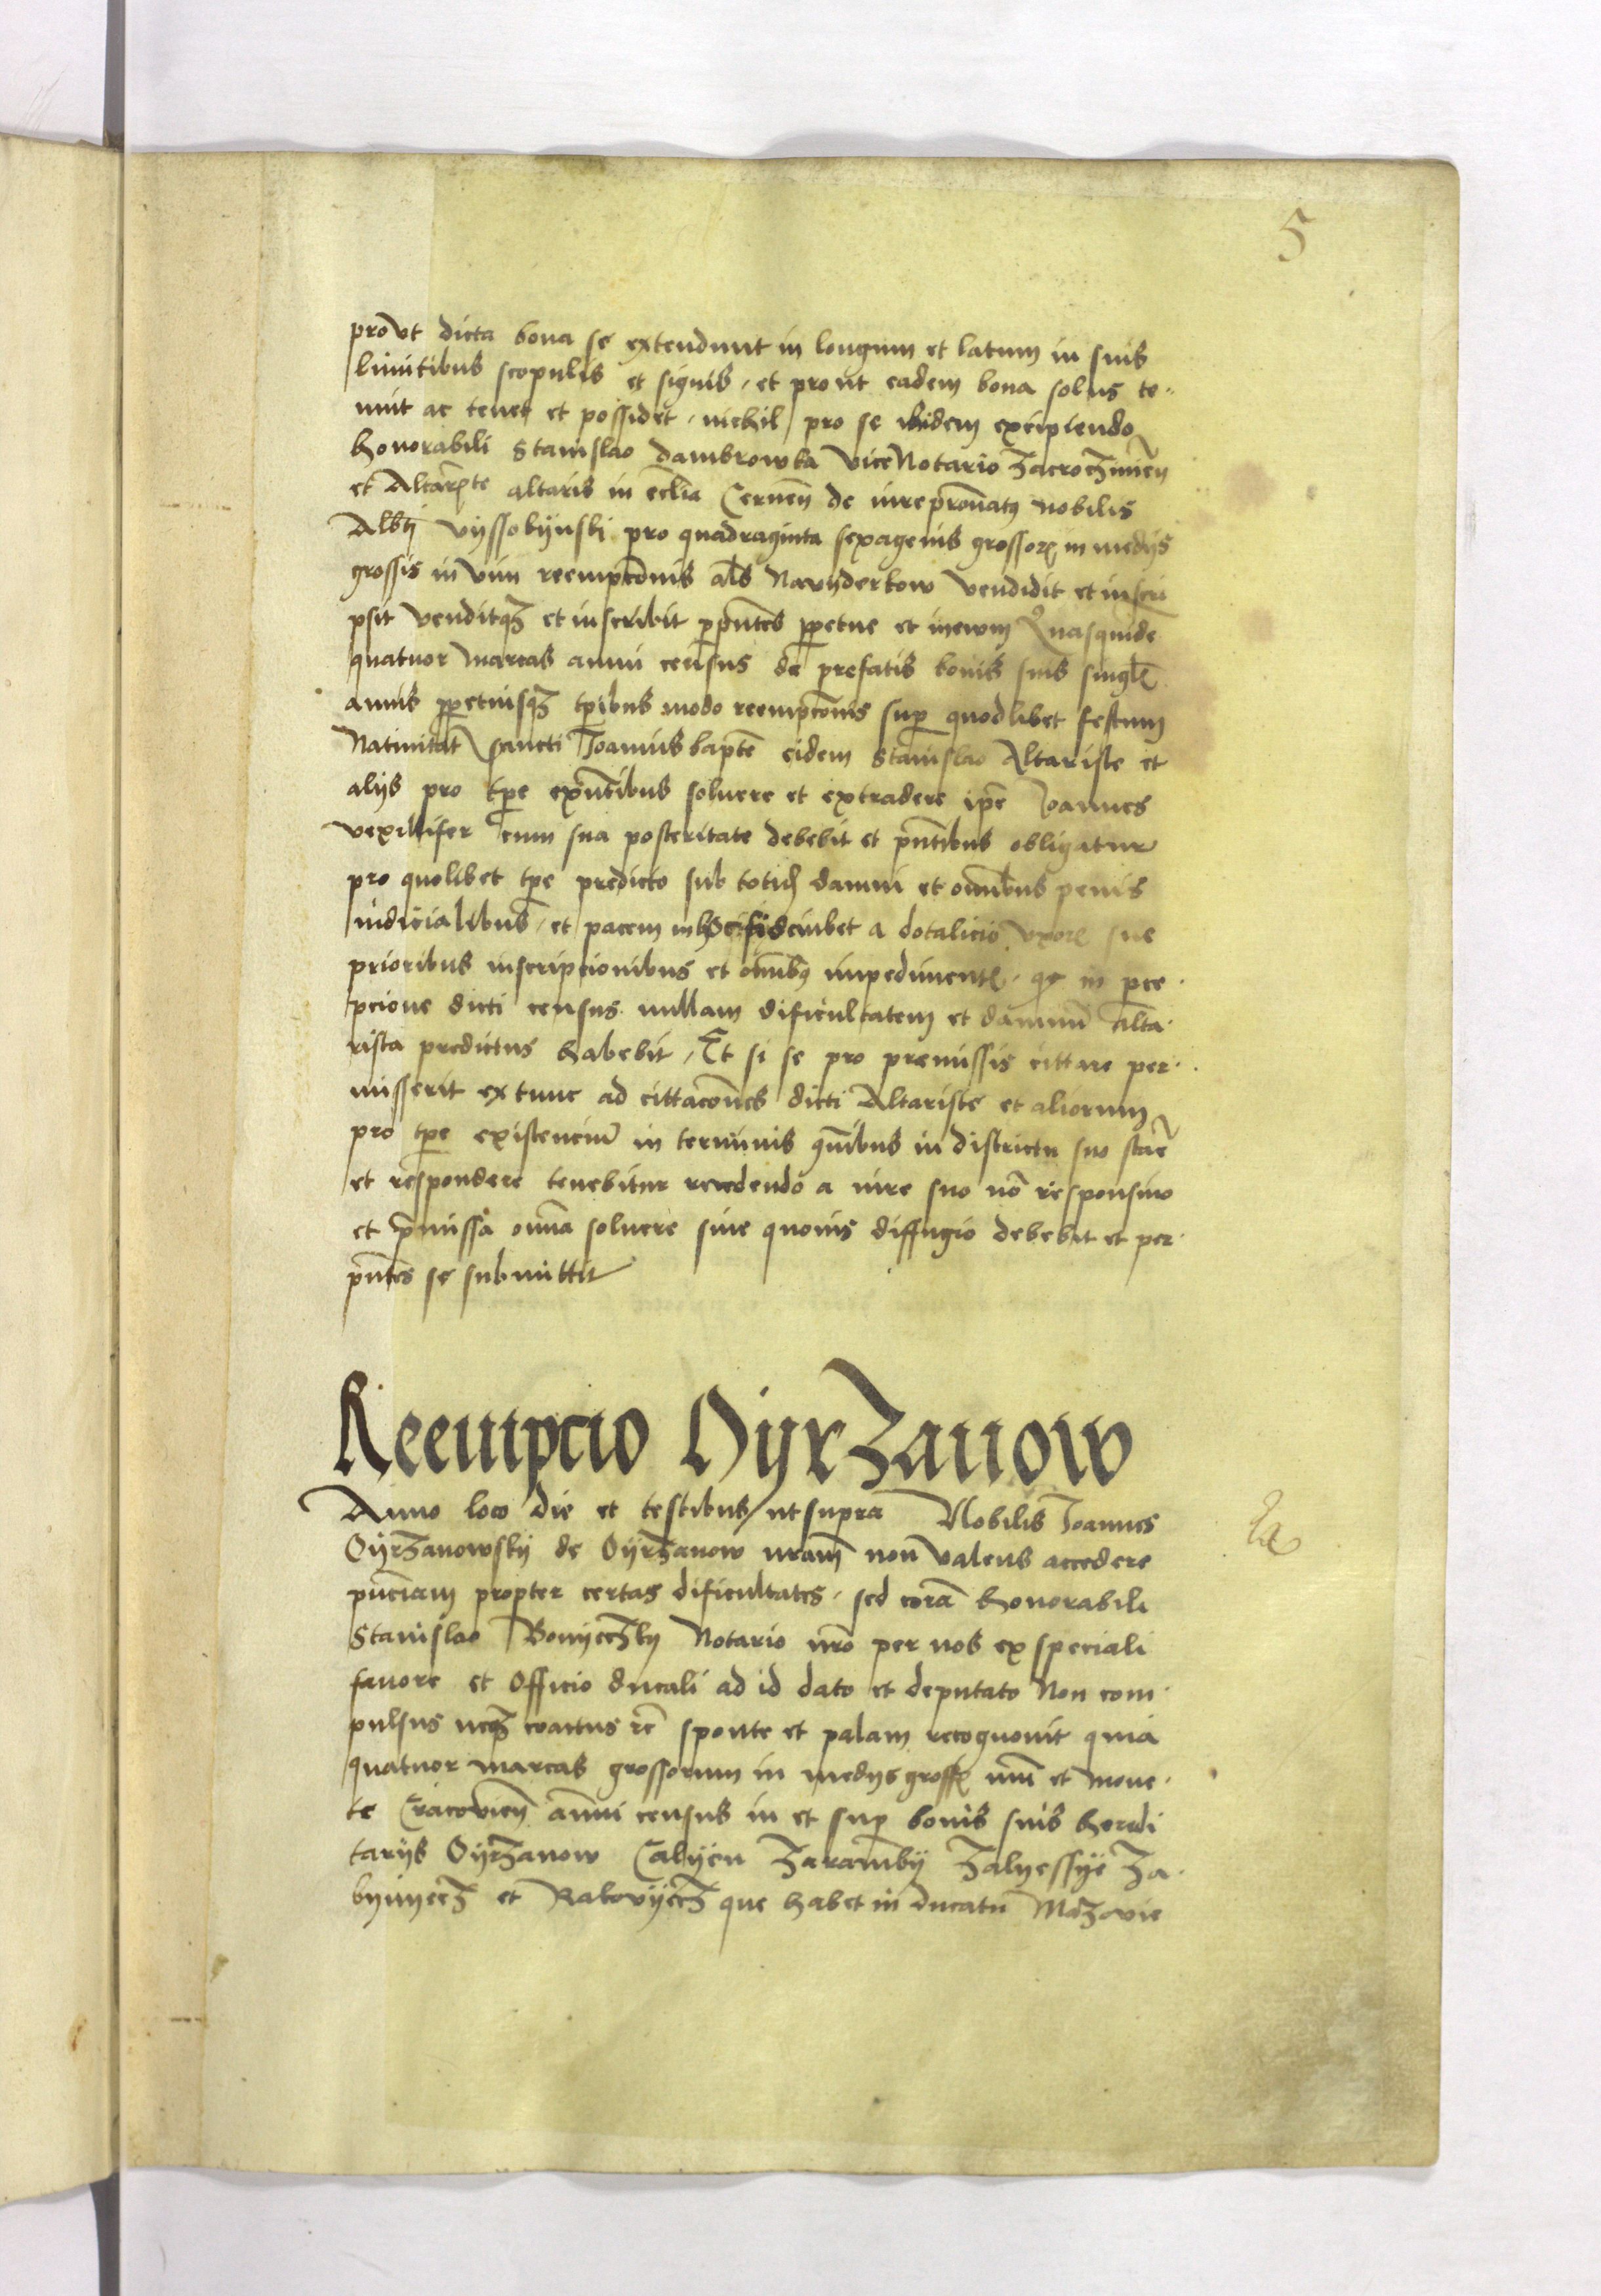 5
provt dicta bona se extendunt in longum et latum in suis
limitibus scopulis et signis, et prout eadem bona solus te-
nuit ac tenet et possidet, nichil pro se ibidem excipiendo
honorabili Stanislao dambrowka viceNotario Zacroczimeñ
et Altariste altaris in ecl̃ia Cerueñ de iurepr̃onatꝰ nobilis
Alb̃ti Vÿssobÿnski pro quadraginta sexagenis grossoꝝ in medÿs
grossis in vim reempcõnis al̃s Navÿderkow vendidit et inscri
psit venditqꝫ et inscribit ꝑpñtes ꝑpetue et inewm Quasquide
quatuor marcas annui census de prefatis bonis suis singl̃
annis ꝑpetuisqꝫ tꝑibus modo reempcõnis suꝑ quodlibet festum
Natiuitat̃ sancti Joannis bapt̃e eidem Stanislao Altariste et
alÿs pro tꝑe exñtibus soluere et extradere ip̃e Joannes
vexillifer cum sua posteritate debebit et pñtibus obligatur
pro quolibet tꝑe predicto sub totid̃ damni et om̃ibus penis
iudicialibus, et pacem a dotalicio vxoꝝ sue
prioribus inscripcionibus et om̃ibꝰ impedimentꝭ, qꝫ in perce-
pcione dicti census nullam dificultatem et damnũ alta-
rista predictus habebit, Et si se pro premissis cittare per-
misserit extunc ad cittacões dicti Altariste et aliorum
pro tꝑe existenciũ in terminis qũibus in districtu suo star̃e
et respondere tenebitur recedendo a iure suo nõ responsiuo
et p̃missa om̃ia soluere sine quouis diffugio debebit et per-
pñtes se submittit
Reempcio OÿrZanow
Anno loco die et testibus vtsupra Nobilis Joannes
OÿrZanowskÿ de OÿrZanow nr̃am non valens accedere
pñciam propter certas dificultates, sed corã honorabili
Stanislao Bonÿeczkÿ Notario nr̃o per nos ex speciali
fauore et Officio ducali ad id dato et deputato Non com-
pulsus neqꝫ coactus rc̃ sponte et palam recognouit quia
quatuor marcas grossorum in medÿs grossꝭ nũi et mone-
te Cracovieñ annui census in et suꝑ bonis suis heredi
tarÿs OÿrZanow Calÿen Zarambÿ Zalÿessÿe Za-
bÿnÿecz et Rakovÿecz que habet in ducatu Mazovie